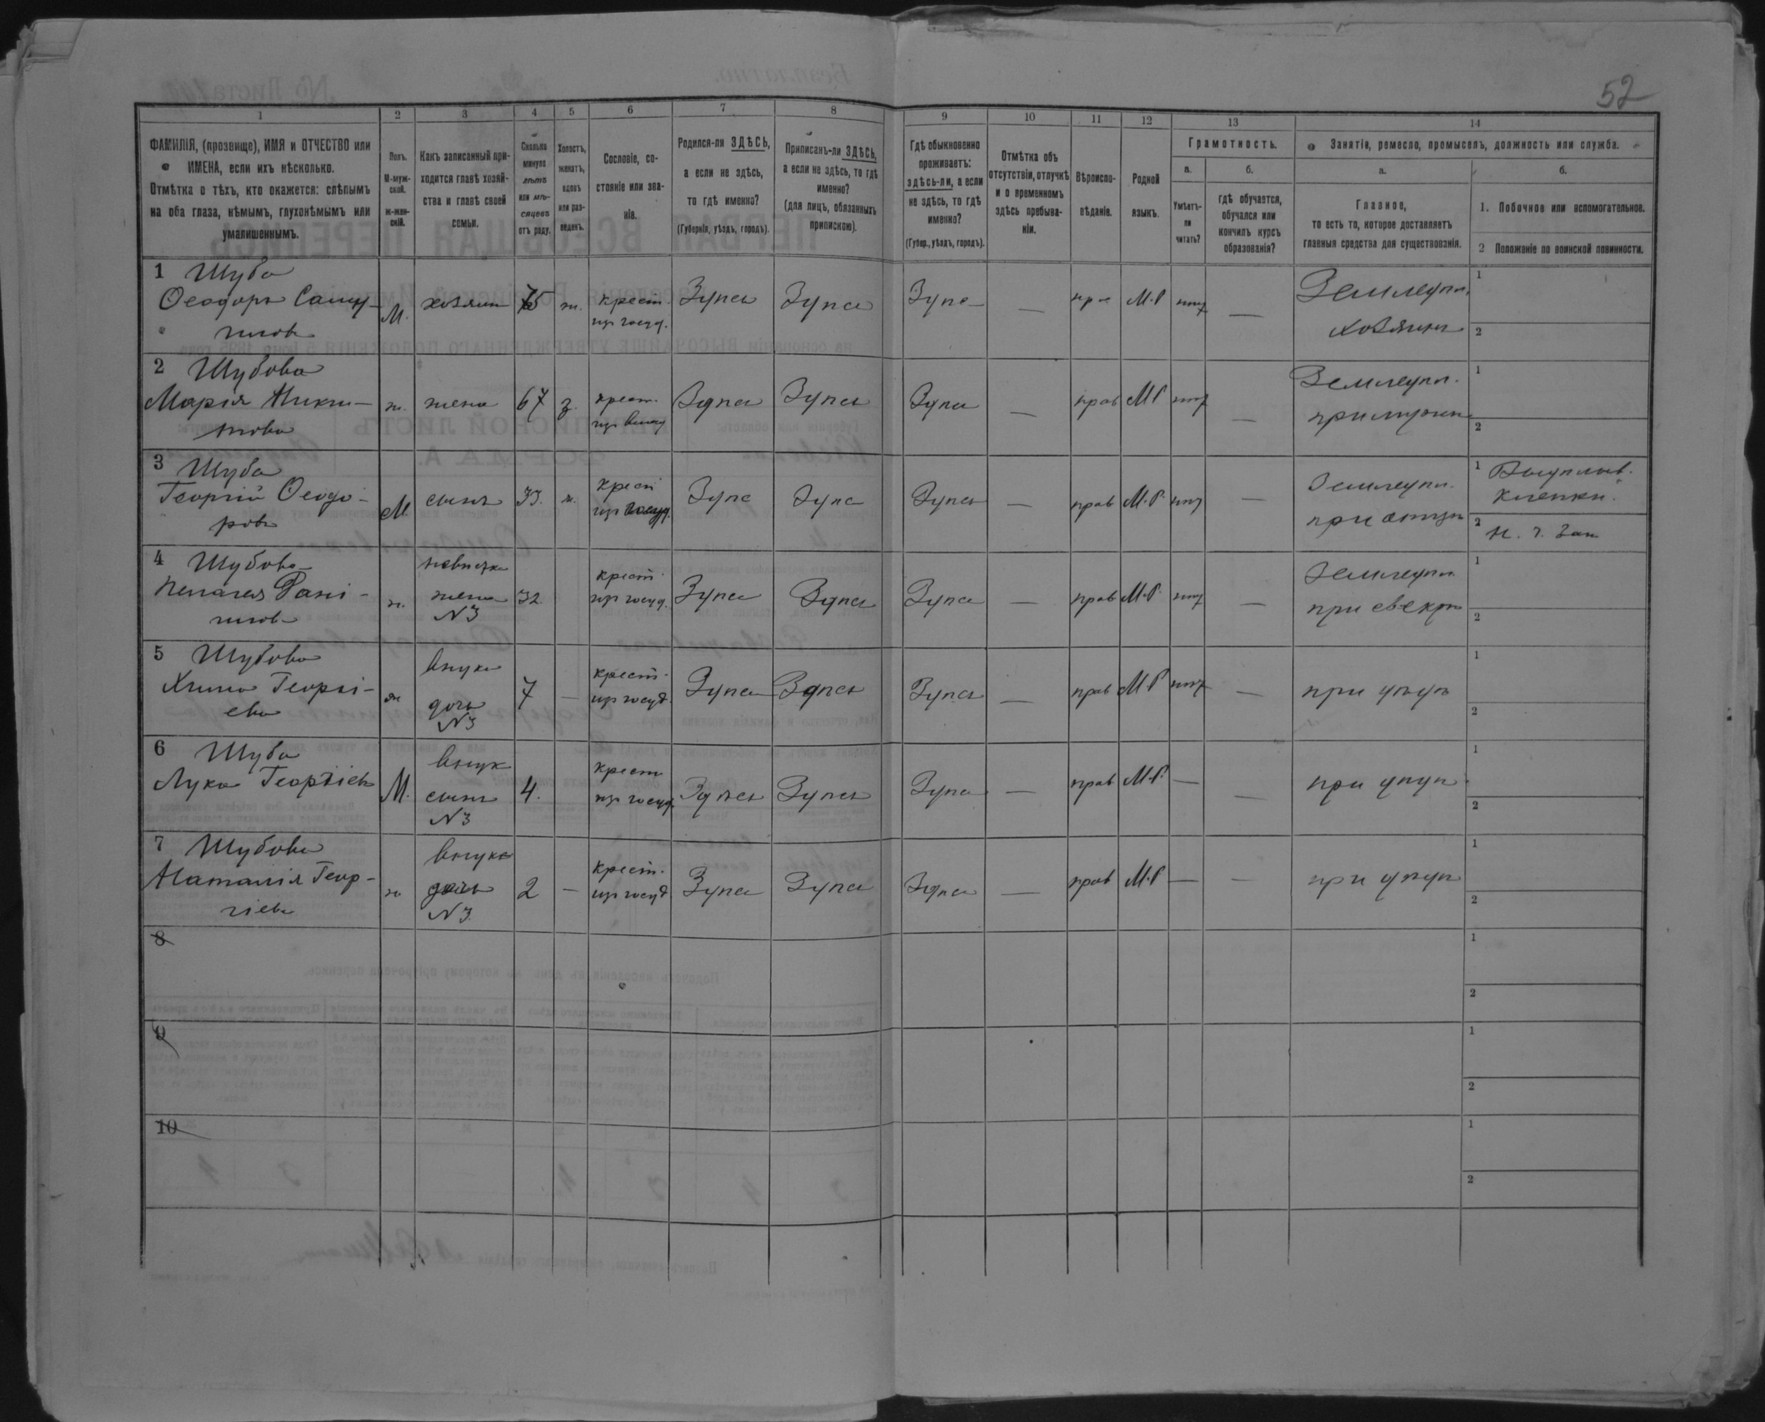 52
1 2 3 4 5 6 7 8 9 10 11 12 13 14
ФАМИЛІЯ, (прозвище), ИМЯ и ОТЧЕСТВО или
ИМЕНА, если ихъ нѣсколько.
Отмѣтка о тѣхъ, кто окажется: слѣпымъ
на оба глаза, нѣмымъ, глухонѣмымъ или
умалишеннымъ.
Полъ.
М-муж-
ской.
ж-жен-
скій.
Какъ записанный при-
ходится главѣ хозяй-
ства и главѣ своей
семьи.
Сколько
минуло
лѣтъ
или мѣ-
сяцевъ
отъ роду.
Холостъ,
женатъ,
вдовъ
или раз-
веденъ.
Сословіе, со-
стояніе или зва-
ніе.
Родился-ли ЗДѢСЬ,
а если не здѣсь,
то гдѣ именно?
(Губернія, уѣздъ, городъ).
Приписанъ-ли ЗДѢСЬ,
а если не здѣсь, то гдѣ
именно?
(для лицъ, обязанныхъ
припискою).
Гдѣ обыкновенно
проживаетъ:
здѣсь-ли, а если
не здѣсь, то гдѣ
именно?
(Губер., уѣздъ, городъ).
Отмѣтка объ
отсутствіи, отлучкѣ
и о временномъ
здѣсь пребыва-
ніи.
Вѣроиспо-
вѣданіе.
Родной
языкъ.
Грамотность.
а.
Умѣетъ-
ли
читать?
б.
гдѣ обучается,
обучался или
кончилъ курсъ
образованія?
Занятіе, ремесло, промыселъ, должность или служба.
а.
Главное,
то есть то, которое доставляетъ
главныя средства для существованія.
б.
1. Побочное или вспомогательное.
2 Положеніе по воинской повинности.
1 Шуба
Ѳеодоръ Саму-
иловъ
М. хозяинъ 75 ж. крест. из госуд. Здѣсь Здѣсь Здѣсь — пра М.Р нѣт — Земледѣл. хозяинъ
1
2
2 Шубова
Марія Ники-
това
ж. жена 67 з. крест. Здѣсь Здѣсь Здѣсь — прав М.Р нѣт — Земледѣл. при мужѣ
1
2
3 Шуба
Георгій Ѳеодо-
ровъ
М. сынъ 33. ж. крест из госуд. Здѣсь Здѣсь Здѣсь — прав М.Р. нѣт — Земледѣл. при отцѣ
1
2
4 Шубова
Пелагея
ж. невѣстка жена N3 32 крест. из госуд. Здѣсь Здѣсь Здѣсь — прав М.Р. нѣт — Земледѣл. при свекрѣ
1
2
5 Шубова
Георгі-
ева
ж внука дочь N3 7 — крест. из госуд Здѣсь Здѣсь Здѣсь — прав М.Р нѣт — при дѣдѣ
1
2
6 Шуба
Лука Георгіевъ
М. внукъ сынъ N3 4. крест из госуд. Здѣсь Здѣсь Здѣсь — прав М.Р. — — при дѣдѣ
1
2
7 Шубова
Наталія Геор-
гіева
ж внука дочь N3. 2 — крест. из госуд Здѣсь Здѣсь Здѣсь — прав М.Р — — при дѣдѣ
1
2
8
1
2
9
1
2
10
1
2